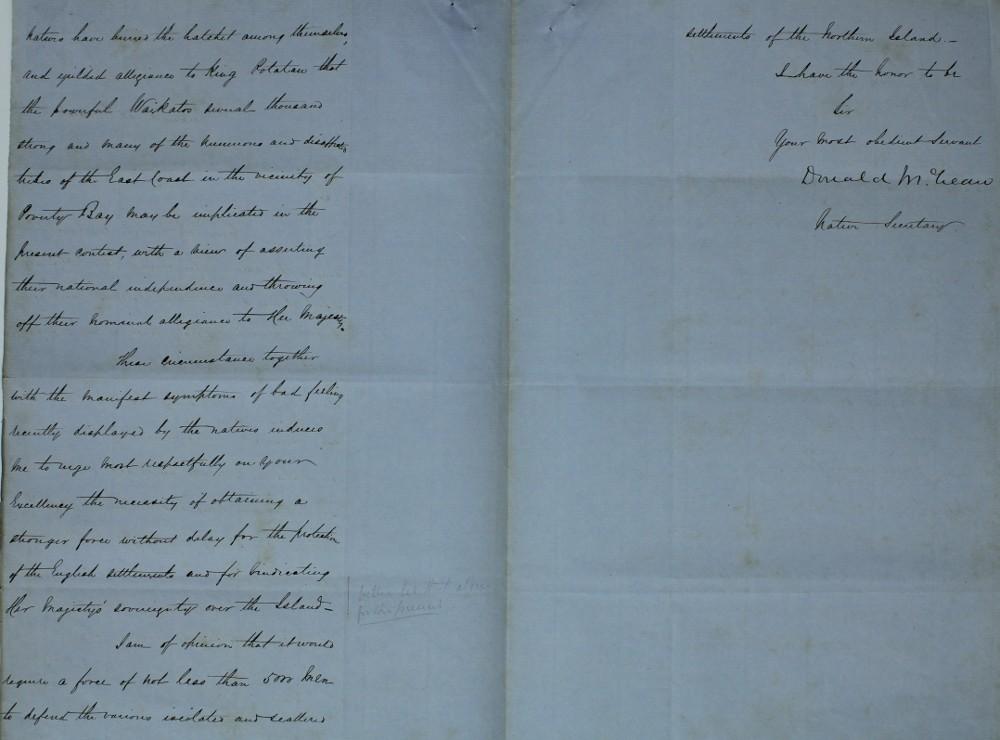 natives have buried the hatchet among themselves,
and yielded allegiance to King Potatau that
the powerful Waikatos several thousand
strong and many of the numerous and disaffected
tribes of the East Coast in the vicinity of
Poverty Bay may be implicated in the
present contest, with a view of asserting
their national independence and throwing
off their nominal allegiance to Her Majesty.
These circumstances together
with the manifest symptoms of bad feeling
recently displayed by the natives induces
me to urge most respectfully on your
Excellency the necessity of obtaining a
stronger force without delay for the protection
of the English settlements and for vindicating
Her Majesty's sovereignty over the Island—
I am of opinion that it would
require a force of not less than 5000 men
to defend the various isolated and scattered
for the present
settlements of the Northern Island.—
I have the honor to be
Sir
Your most obedient Servant
Donald McLean
Native Secretary